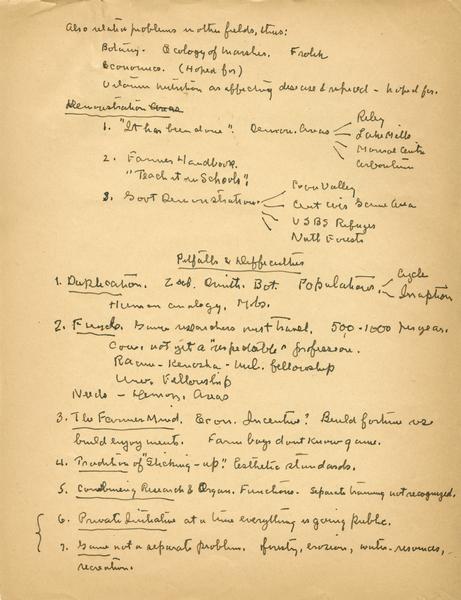 Also related problems in other fields, thus:
Botany. Ecology of marshes. Frolik
Economics. (Hoped for)
Vitamin nutrition as affecting disease & reprod - hoped for.
Demonstration Areas
1. "It has been done". Demon. Areas Riley
Lake Mills
Monsal Centre
Arboretum
2. Farmer Handbook.
"Teach it in Schools".
3. Govt Demonstration Coon Valley
Cent Wis Game Area
USBS Refuges
Natl Forests
Pitfalls & Difficulties
1. Duplication. Zool. Ornith. Bot. Populations Cycle
Irruption
Human analogy.
2. Funds. Game researchers must travel. 500-1000 per year.
Cons. not yet a "respectable" profession.
Racine - Kenosha - Mil. fellowship
Univ. Fellowship
Needs - Demon. Areas
3. The Farmer Mind. Econ. Incentive? Build fortune vs
build enjoyments. Farm boys dont know game.
4. Tradition of "Slicking-up". Esthetic standards.
5. Combining Research & Organ. Functions. Separate training not recognized.
6. Private Initiative at a time everything is going public.
7. Game not a separate problem. forestry, erosion, water-resources,
recreation.